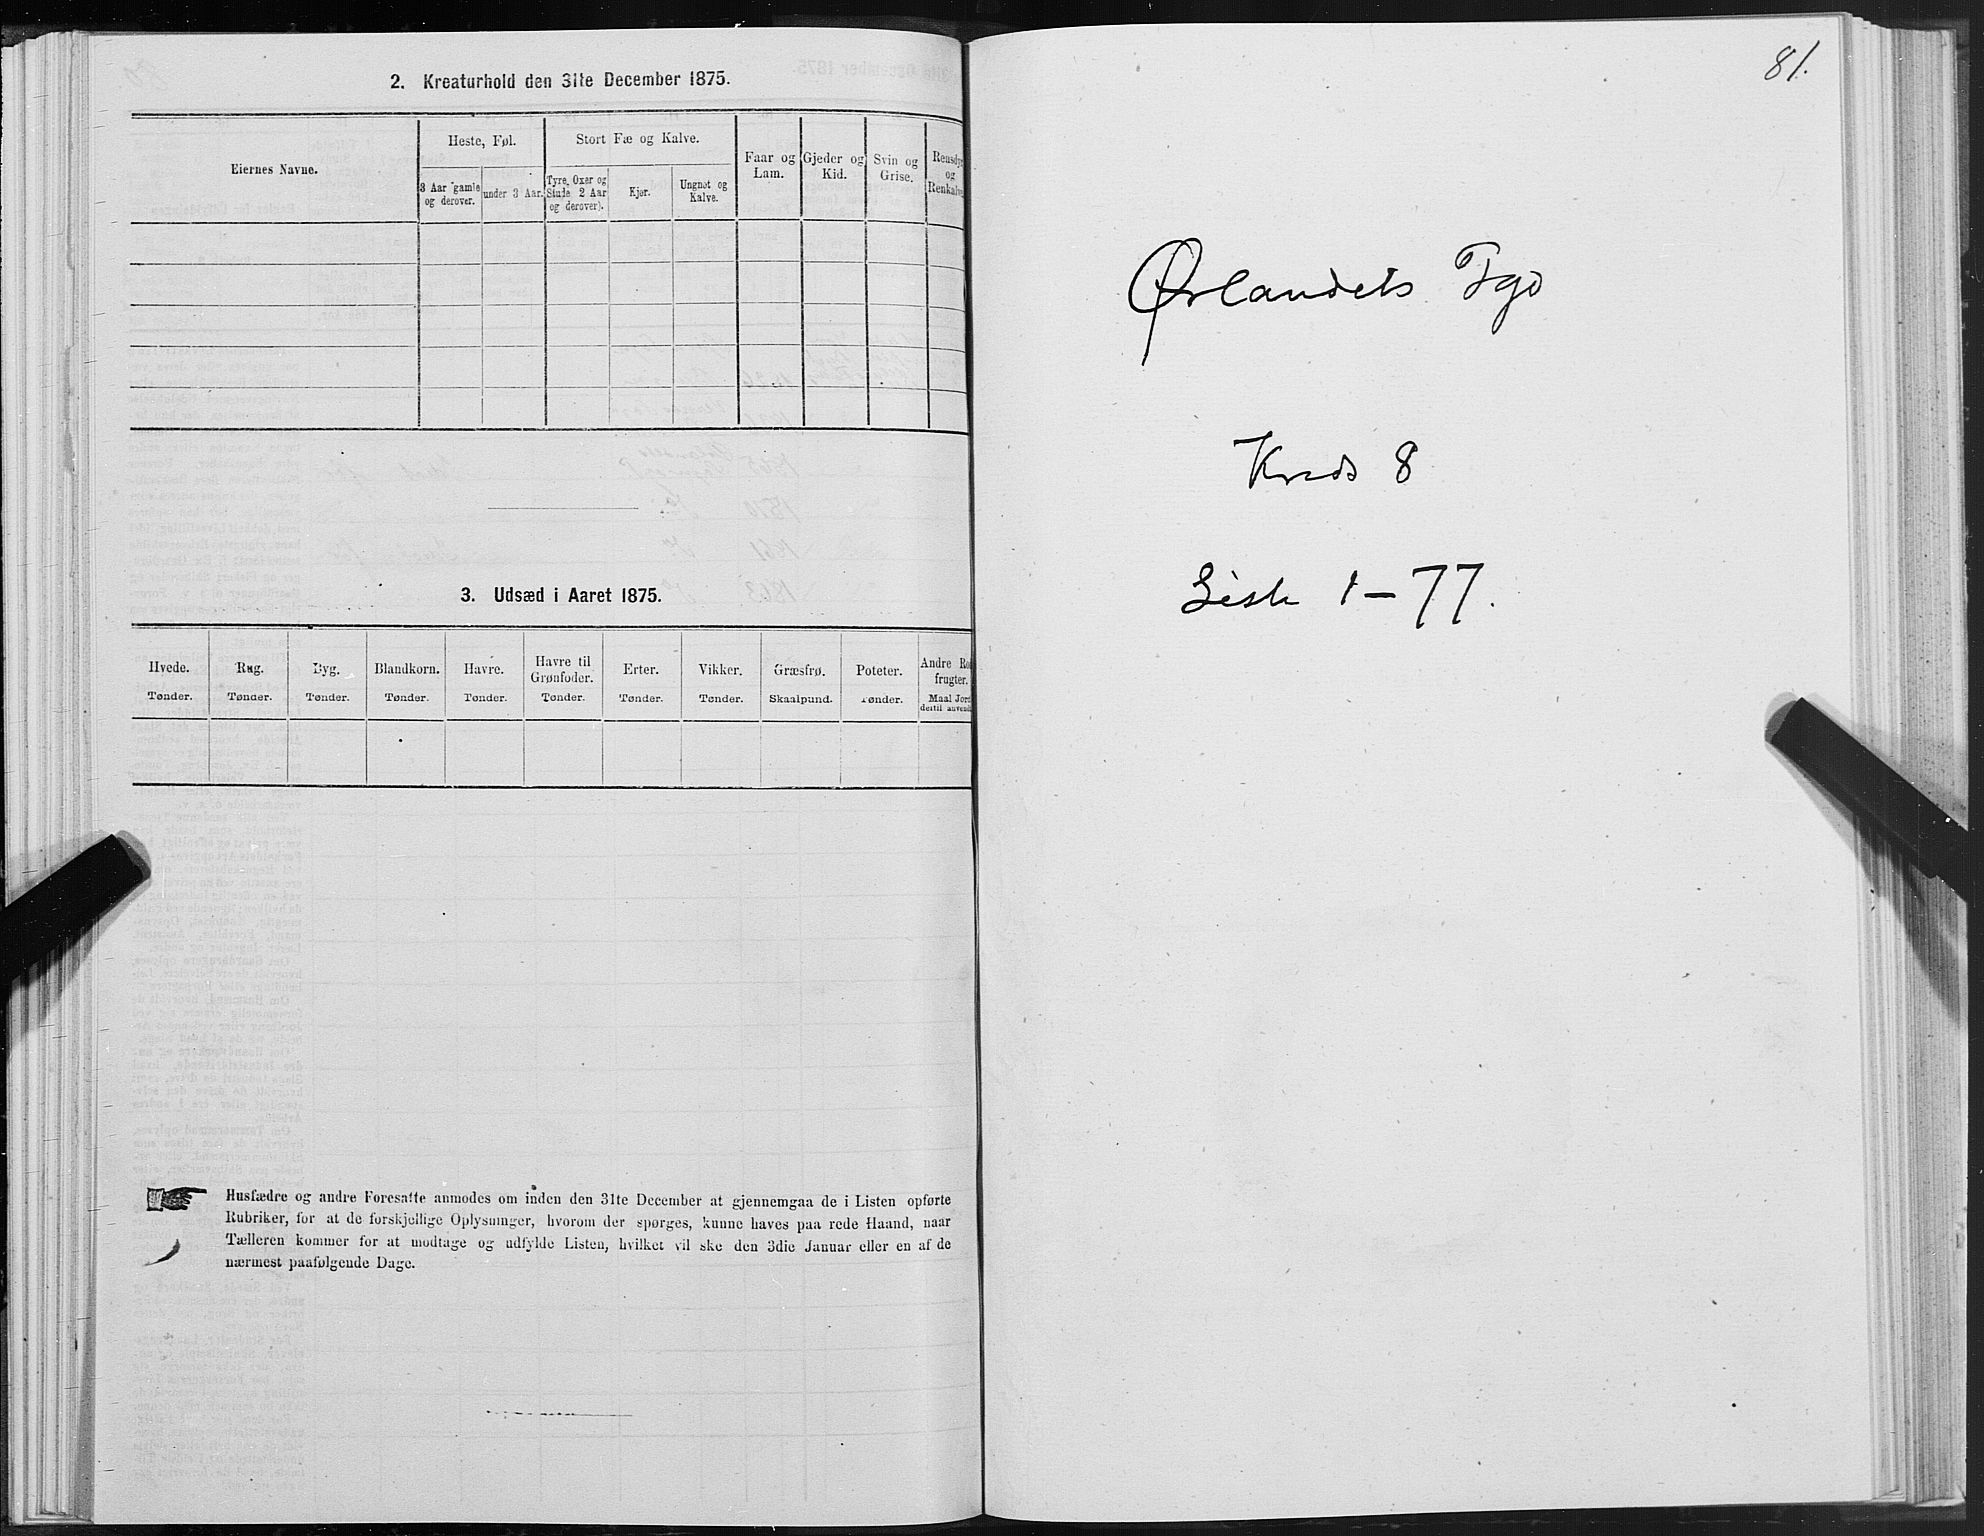 2. Kreaturhold den 31te December 1875.
Eiernes Navne.
Heste, Føl.
Stort Fæ og Kalve.
Faar og Lam.
Gjeder og Kid.
Svin og Grise.
Rensdyr og Renkalve
3 Aar gamle og derover.
under 3 Aar.
Tyre, Oxer og Stude 2 Aar og derover).
Kjør.
Ungnøt og Kalve.
3. Udsæd i Aaret 1875.
Hvede. Rug. Byg. Blandkorn. Havre. Havre til Grønfoder. Erter. Vikker. Græsfrø. Poteter. Andre Ro frugter.
Tønder. Tønder. Tønder. Tønder. Tønder. Tønder. Tønder. Tønder. Skaalpund. Tønder. Maal Jord dertil anvend
Husfædre og andre Foresatte anmodes om inden den 31te December at gjennemgaa de i Listen opførte
Rubriker, for at de forskjellige Oplysninger, hvorom der spørges, kunne haves paa rede Haand, naar
Tælleren kommer for at modtage og udfylde Listen, hvilket vil ske den 3die Januar eller en af de
nærmest paafølgende Dage.
81.
Ørlandets Tgd
Kreds 8
Liste 1-77.